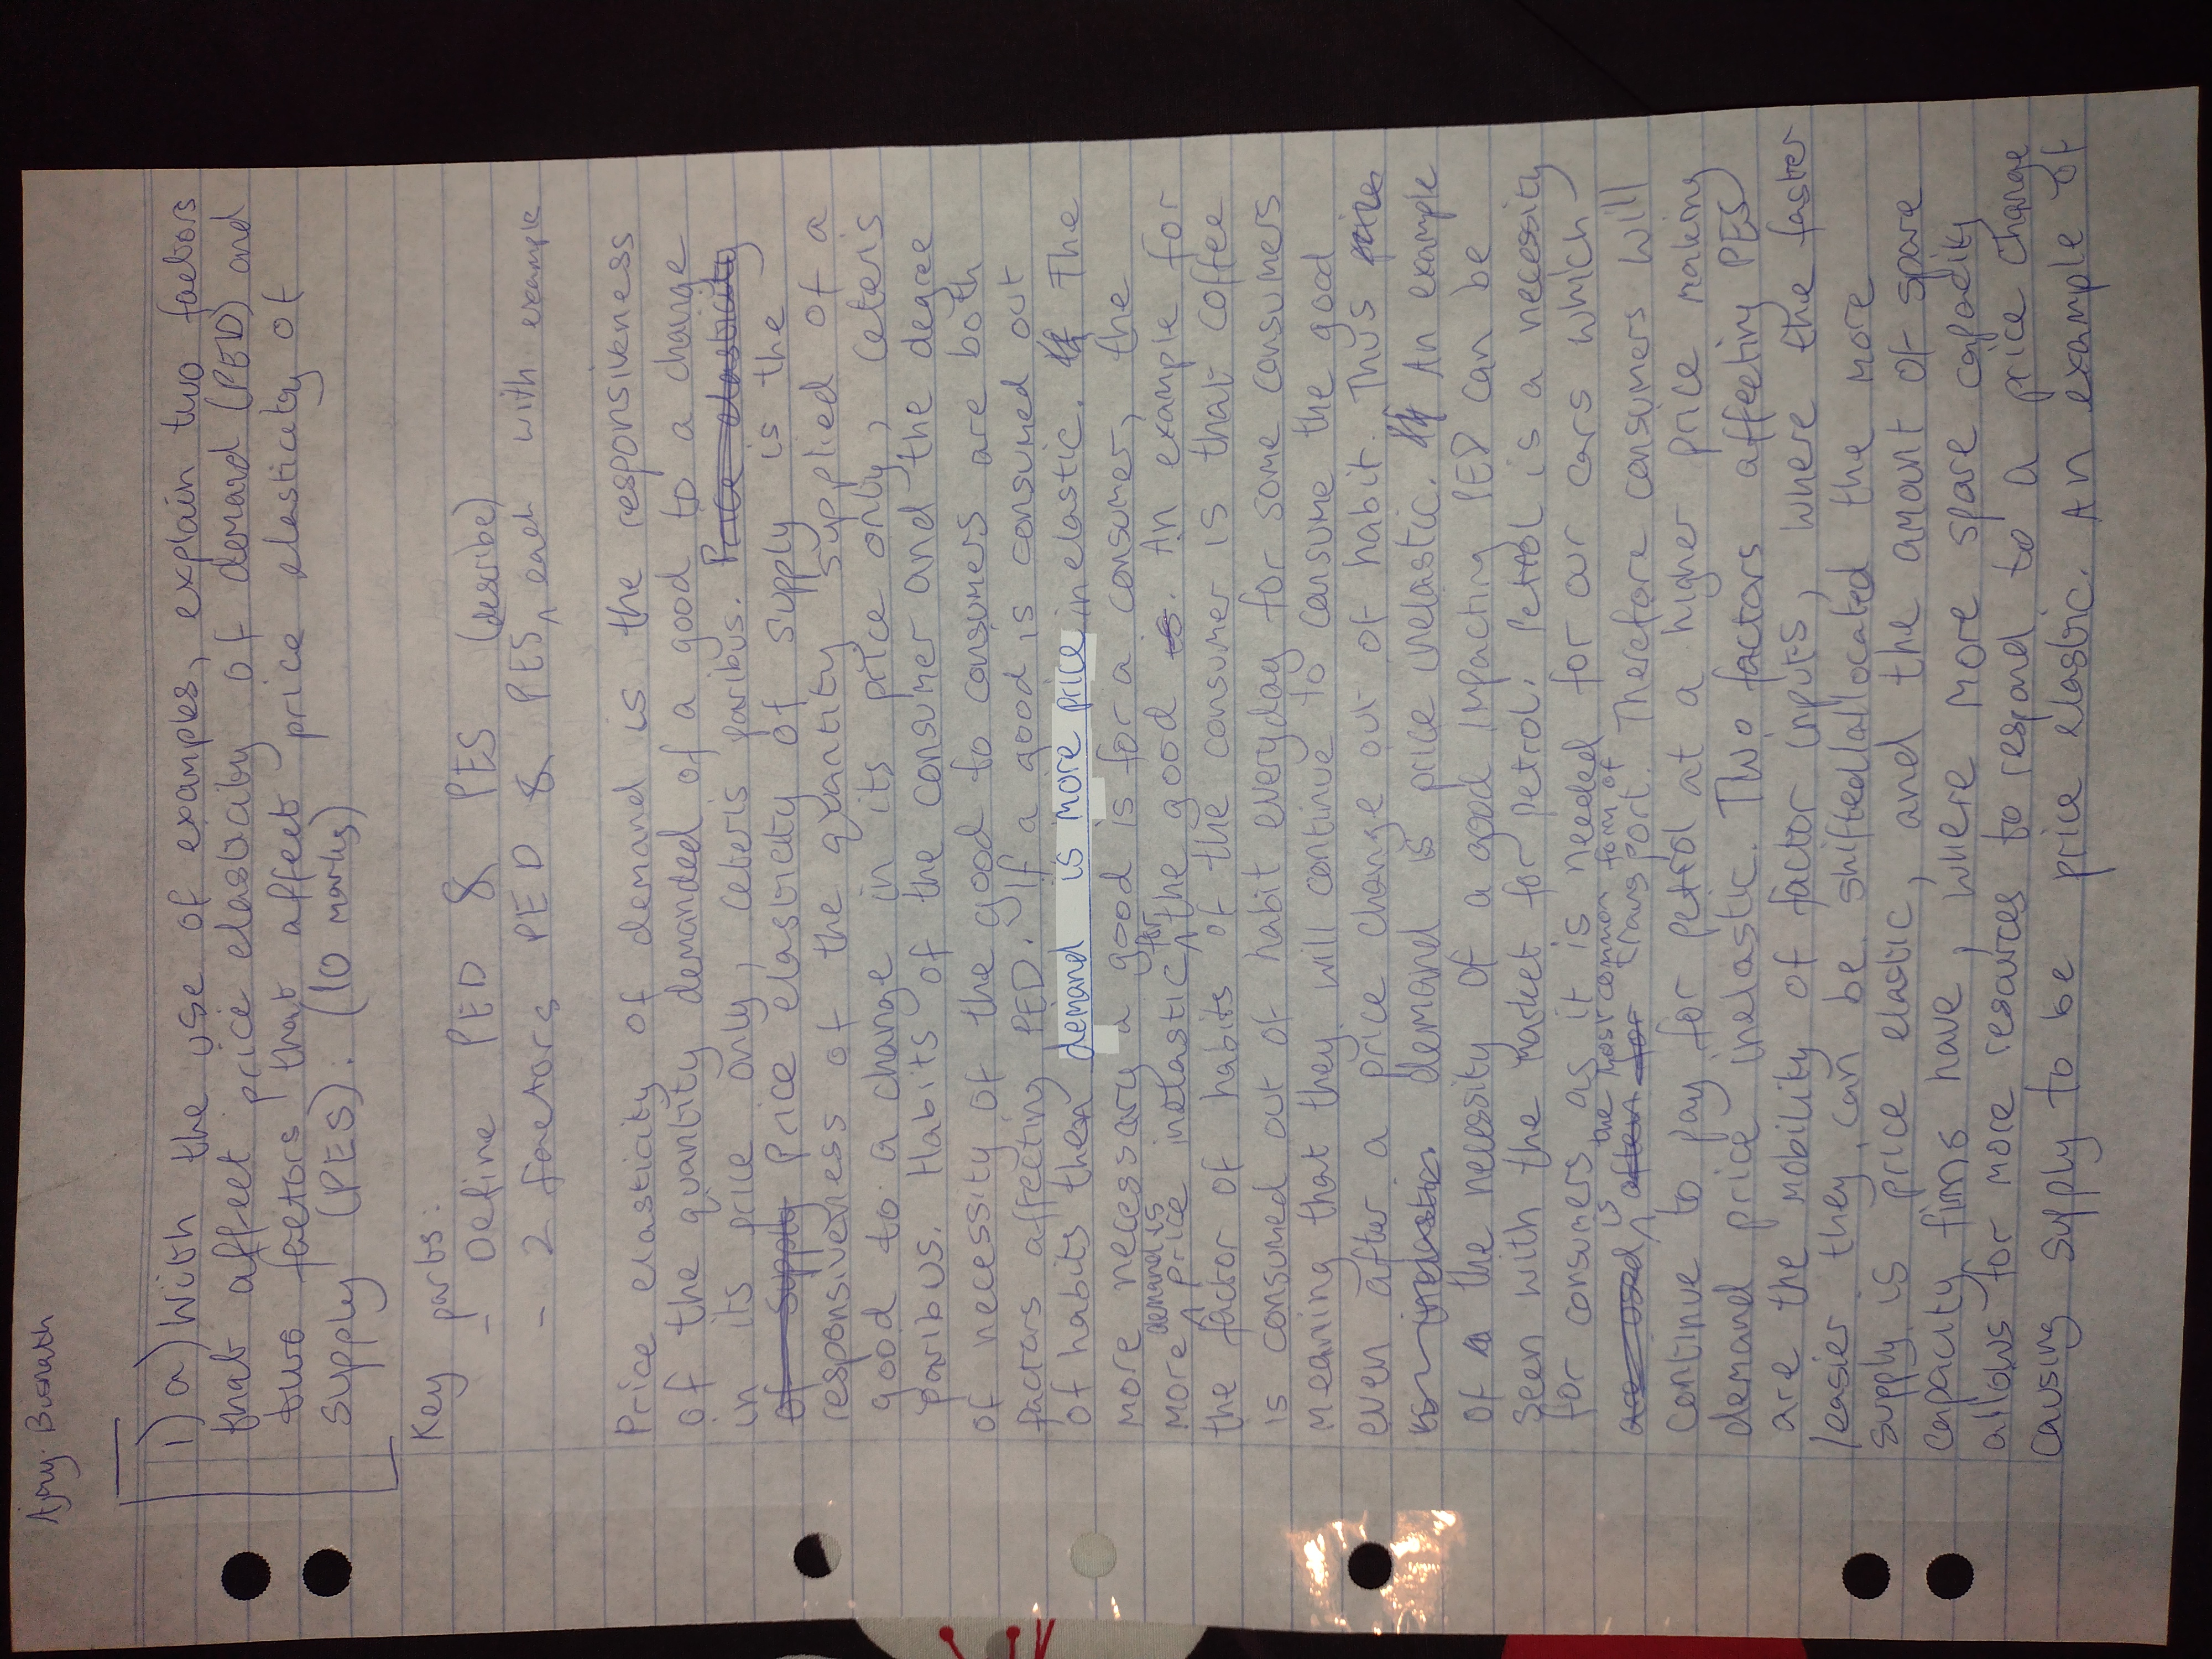 Ajay Bisnath
1) a) With the use of examples, explain two factors
that affect price elasticity of demand (PED) and
two factors that affect price elasticity of
supply (PES). (10 marks)
Key parts:
- Define PED & PES (describe)
- 2 factors PED & PES ^ each with example
Price elasticity of demand is the responsiveness
of the quantity demanded of a good to a change
in its price only, ceteris paribus. Price elasticity
of supply Price elasticity of supply is the
responsiveness of the quantity supplied of a
good to a change in its price only, ceteris
paribus. Habits of the consumer and the degree
of necessity of the good to consumers are both
factors affecting PED. If a good is consumed out
of habits then demand is more price inelastic. If The
more necessary a good is for a consumer, the
more ^ demand is price inelastic ^ for the good is. An example for
the factor of habits of the consumer is that coffee
is consumed out of habit everyday for some consumers
meaning that they will continue to consume the good
even after a price change out of habit. Thus price
is inelastic. demand is price inelastic. An example
of the necessity of a good impacting PED can be
seen with the market for petrol. Petrol is a necessity
for consumers as it is needed for our cars which
are used ^ is the most common form of often for transport. Therefore consumers will
continue to pay for petrol at a higher price making
demand price inelastic. Two factors affecting PES
are the mobility of factor inputs, where the faster
/easier they can be shifted/allocated the more
supply is price elastic, and the amount of spare
capacity firms have, where more spare capacity
allows for more resources to respond to a price change
causing supply to be price elastic. An example of